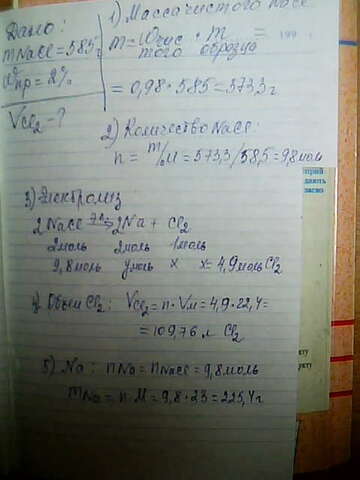 Дано:
m NaCl = 585 г
ω пр = 2%
V Cl₂ - ?
1) Масса чистого NaCl
m = ω чис · m =
того образца
= 0,98 · 585 = 573,3 г
2) Количество NaCl:
n = m/M = 573,3/58,5 = 9,8 моль
3) Электролиз
2NaCl → 2Na + Cl₂
2 моль 2 моль 1 моль
9,8 моль y моль x x = 4,9 моль Cl₂
4) Объём Cl₂: V Cl₂ = n · Vм = 4,9 · 22,4 =
= 109,76 л Cl₂
5) Na: n Na = n NaCl = 9,8 моль
m Na = n · M = 9,8 · 23 = 225,4 г